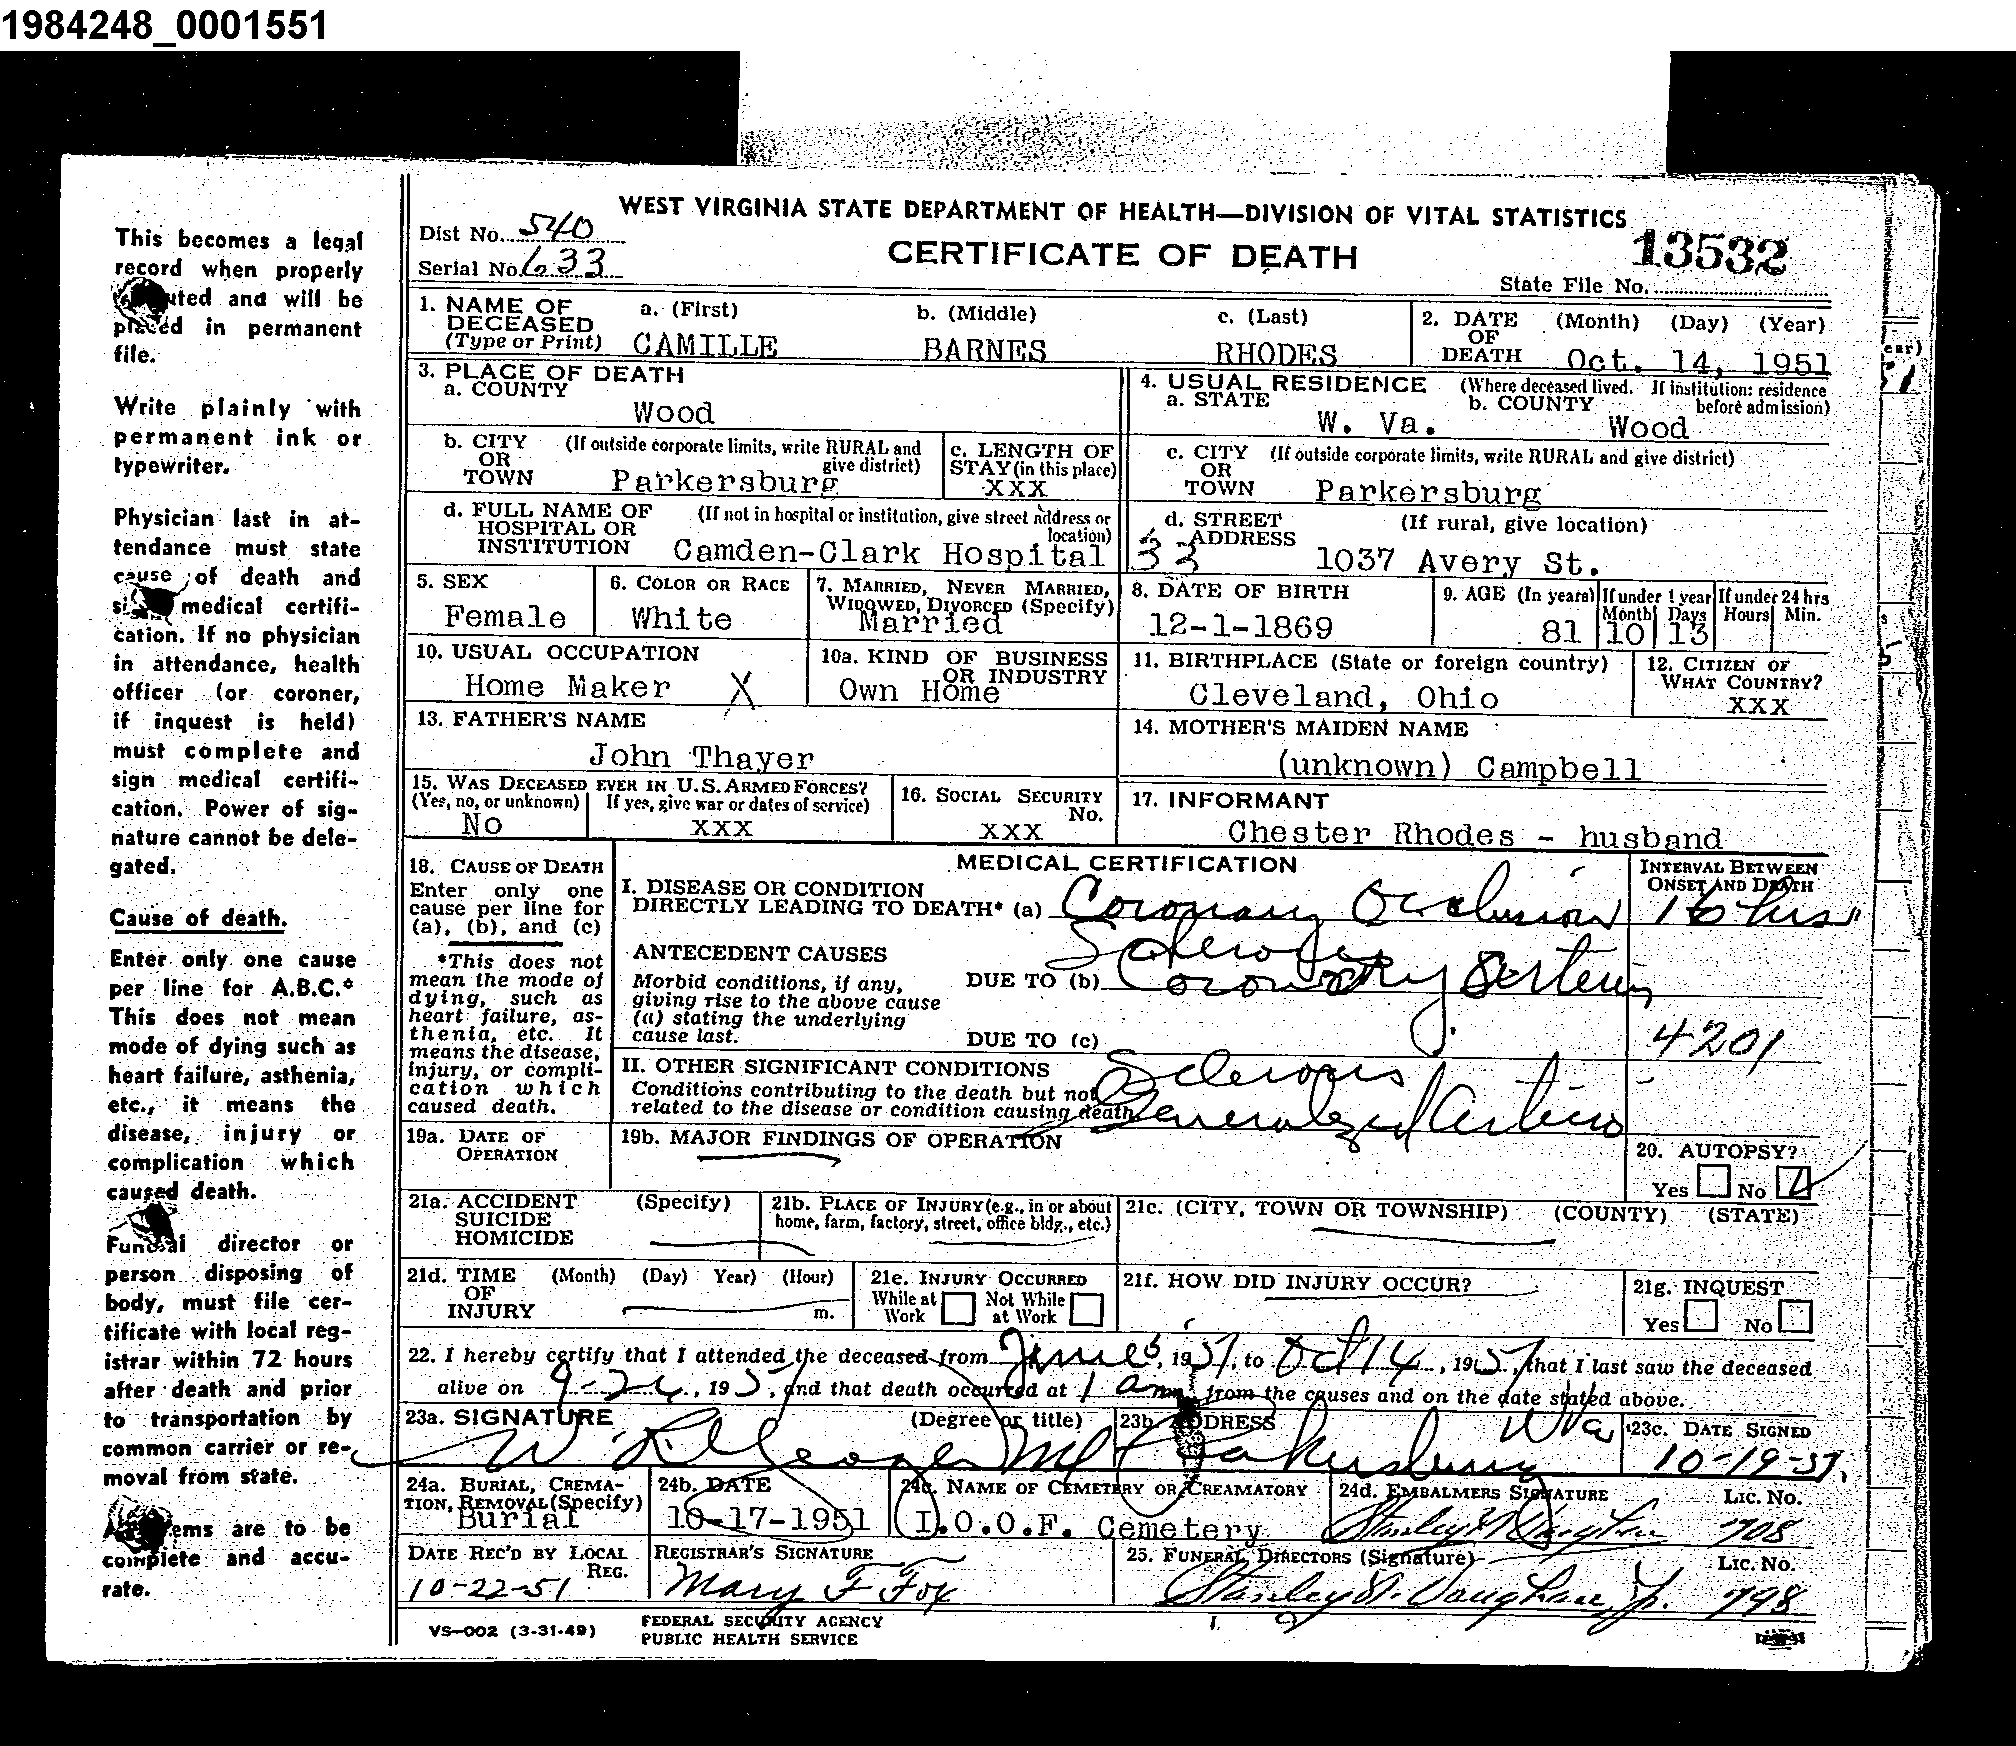 1984248_0001551
This becomes a legal
record when properly
uted and will be
placed in permanent
file.
Write plainly with
permanent ink or
typewriter.
Physician last in at-
tendance must state
cause of death and
medical certifi-
cation. If no physician
in attendance, health
officer (or coroner,
if inquest is held)
must complete and
sign medical certifi-
cation. Power of sig-
nature cannot be dele-
gated.
Cause of death.
Enter only one cause
per line for A.B.C.*
This does not mean
mode of dying such as
heart failure, asthenia,
etc., it means the
disease, injury or
complication which
caused death.
Funeral director or
person disposing of
body, must file cer-
tificate with local reg-
istrar within 72 hours
after death and prior
to transportation by
common carrier or re-
moval from state.
ems are to be
complete and accu-
rate.
WEST VIRGINIA STATE DEPARTMENT OF HEALTH—DIVISION OF VITAL STATISTICS
Dist No. 540
CERTIFICATE OF DEATH
13532
Serial No. 633
State File No.
1. NAME OF DECEASED (Type or Print) a. (First) CAMILLE b. (Middle) BARNES c. (Last) RHODES
2. DATE OF DEATH (Month) (Day) (Year) Oct. 14, 1951
3. PLACE OF DEATH
a. COUNTY Wood
4. USUAL RESIDENCE (Where deceased lived. If institution: residence before admission)
a. STATE W. Va. b. COUNTY Wood
b. CITY OR TOWN (If outside corporate limits, write RURAL and give district) Parkersburg
c. LENGTH OF STAY (in this place) XXX
c. CITY OR TOWN (If outside corporate limits, write RURAL and give district) Parkersburg
d. FULL NAME OF HOSPITAL OR INSTITUTION (If not in hospital or institution, give street address or location) Camden-Clark Hospital
d. STREET ADDRESS (If rural, give location) 33 1037 Avery St.
5. SEX Female
6. COLOR OR RACE White
7. MARRIED, NEVER MARRIED, WIDOWED, DIVORCED (Specify) Married
8. DATE OF BIRTH 12-1-1869
9. AGE (In years) 81 If under 1 year Month 10 Days 13 If under 24 hrs Hours Min.
10. USUAL OCCUPATION Home Maker X
10a. KIND OF BUSINESS OR INDUSTRY Own Home
11. BIRTHPLACE (State or foreign country) Cleveland, Ohio
12. CITIZEN OF WHAT COUNTRY? XXX
13. FATHER'S NAME John Thayer
14. MOTHER'S MAIDEN NAME (unknown) Campbell
15. WAS DECEASED EVER IN U.S. ARMED FORCES? (Yes, no, or unknown) No If yes, give war or dates of service) XXX
16. SOCIAL SECURITY No. XXX
17. INFORMANT Chester Rhodes - husband
18. CAUSE OF DEATH
Enter only one
cause per line for
(a), (b), and (c)
*This does not
mean the mode of
dying, such as
heart failure, as-
thenia, etc. It
means the disease,
injury, or compli-
cation which
caused death.
MEDICAL CERTIFICATION
INTERVAL BETWEEN ONSET AND DEATH
I. DISEASE OR CONDITION
DIRECTLY LEADING TO DEATH* (a) Coronary Occlusion 16 hrs
ANTECEDENT CAUSES
Morbid conditions, if any,
giving rise to the above cause
(a) stating the underlying
cause last.
DUE TO (b) Sclerosis Coronary Artery
DUE TO (c)
4201
II. OTHER SIGNIFICANT CONDITIONS
Conditions contributing to the death but not
related to the disease or condition causing death
Sclerosis
Generalized Arterio
19a. DATE OF OPERATION
19b. MAJOR FINDINGS OF OPERATION
20. AUTOPSY? Yes No
21a. ACCIDENT SUICIDE HOMICIDE (Specify)
21b. PLACE OF INJURY (e.g., in or about home, farm, factory, street, office bldg., etc.)
21c. (CITY, TOWN OR TOWNSHIP) (COUNTY) (STATE)
21d. TIME OF INJURY (Month) (Day) Year) (Hour) m.
21e. INJURY OCCURRED While at Work Not While at Work
21f. HOW DID INJURY OCCUR?
21g. INQUEST Yes No
22. I hereby certify that I attended the deceased from June 5, 1951, to Oct 14, 1951, that I last saw the deceased
alive on 9-26, 1951, and that death occurred at 1 am, from the causes and on the date stated above.
23a. SIGNATURE (Degree or title) MD
23b. ADDRESS Parkersburg WVa
23c. DATE SIGNED 10-19-51.
24a. BURIAL, CREMATION, REMOVAL (Specify) Burial
24b. DATE 10-17-1951
24c. NAME OF CEMETERY OR CREAMATORY I.O.O.F. Cemetery
24d. EMBALMERS SIGNATURE LIC. NO. 708
DATE REC'D BY LOCAL REG. 10-22-51
REGISTRAR'S SIGNATURE Mary F Fox
25. FUNERAL DIRECTORS (Signature) Stanley N. Vaughan, Jr. LIC. NO. 798
VS-002 (3-31-49)
FEDERAL SECURITY AGENCY
PUBLIC HEALTH SERVICE